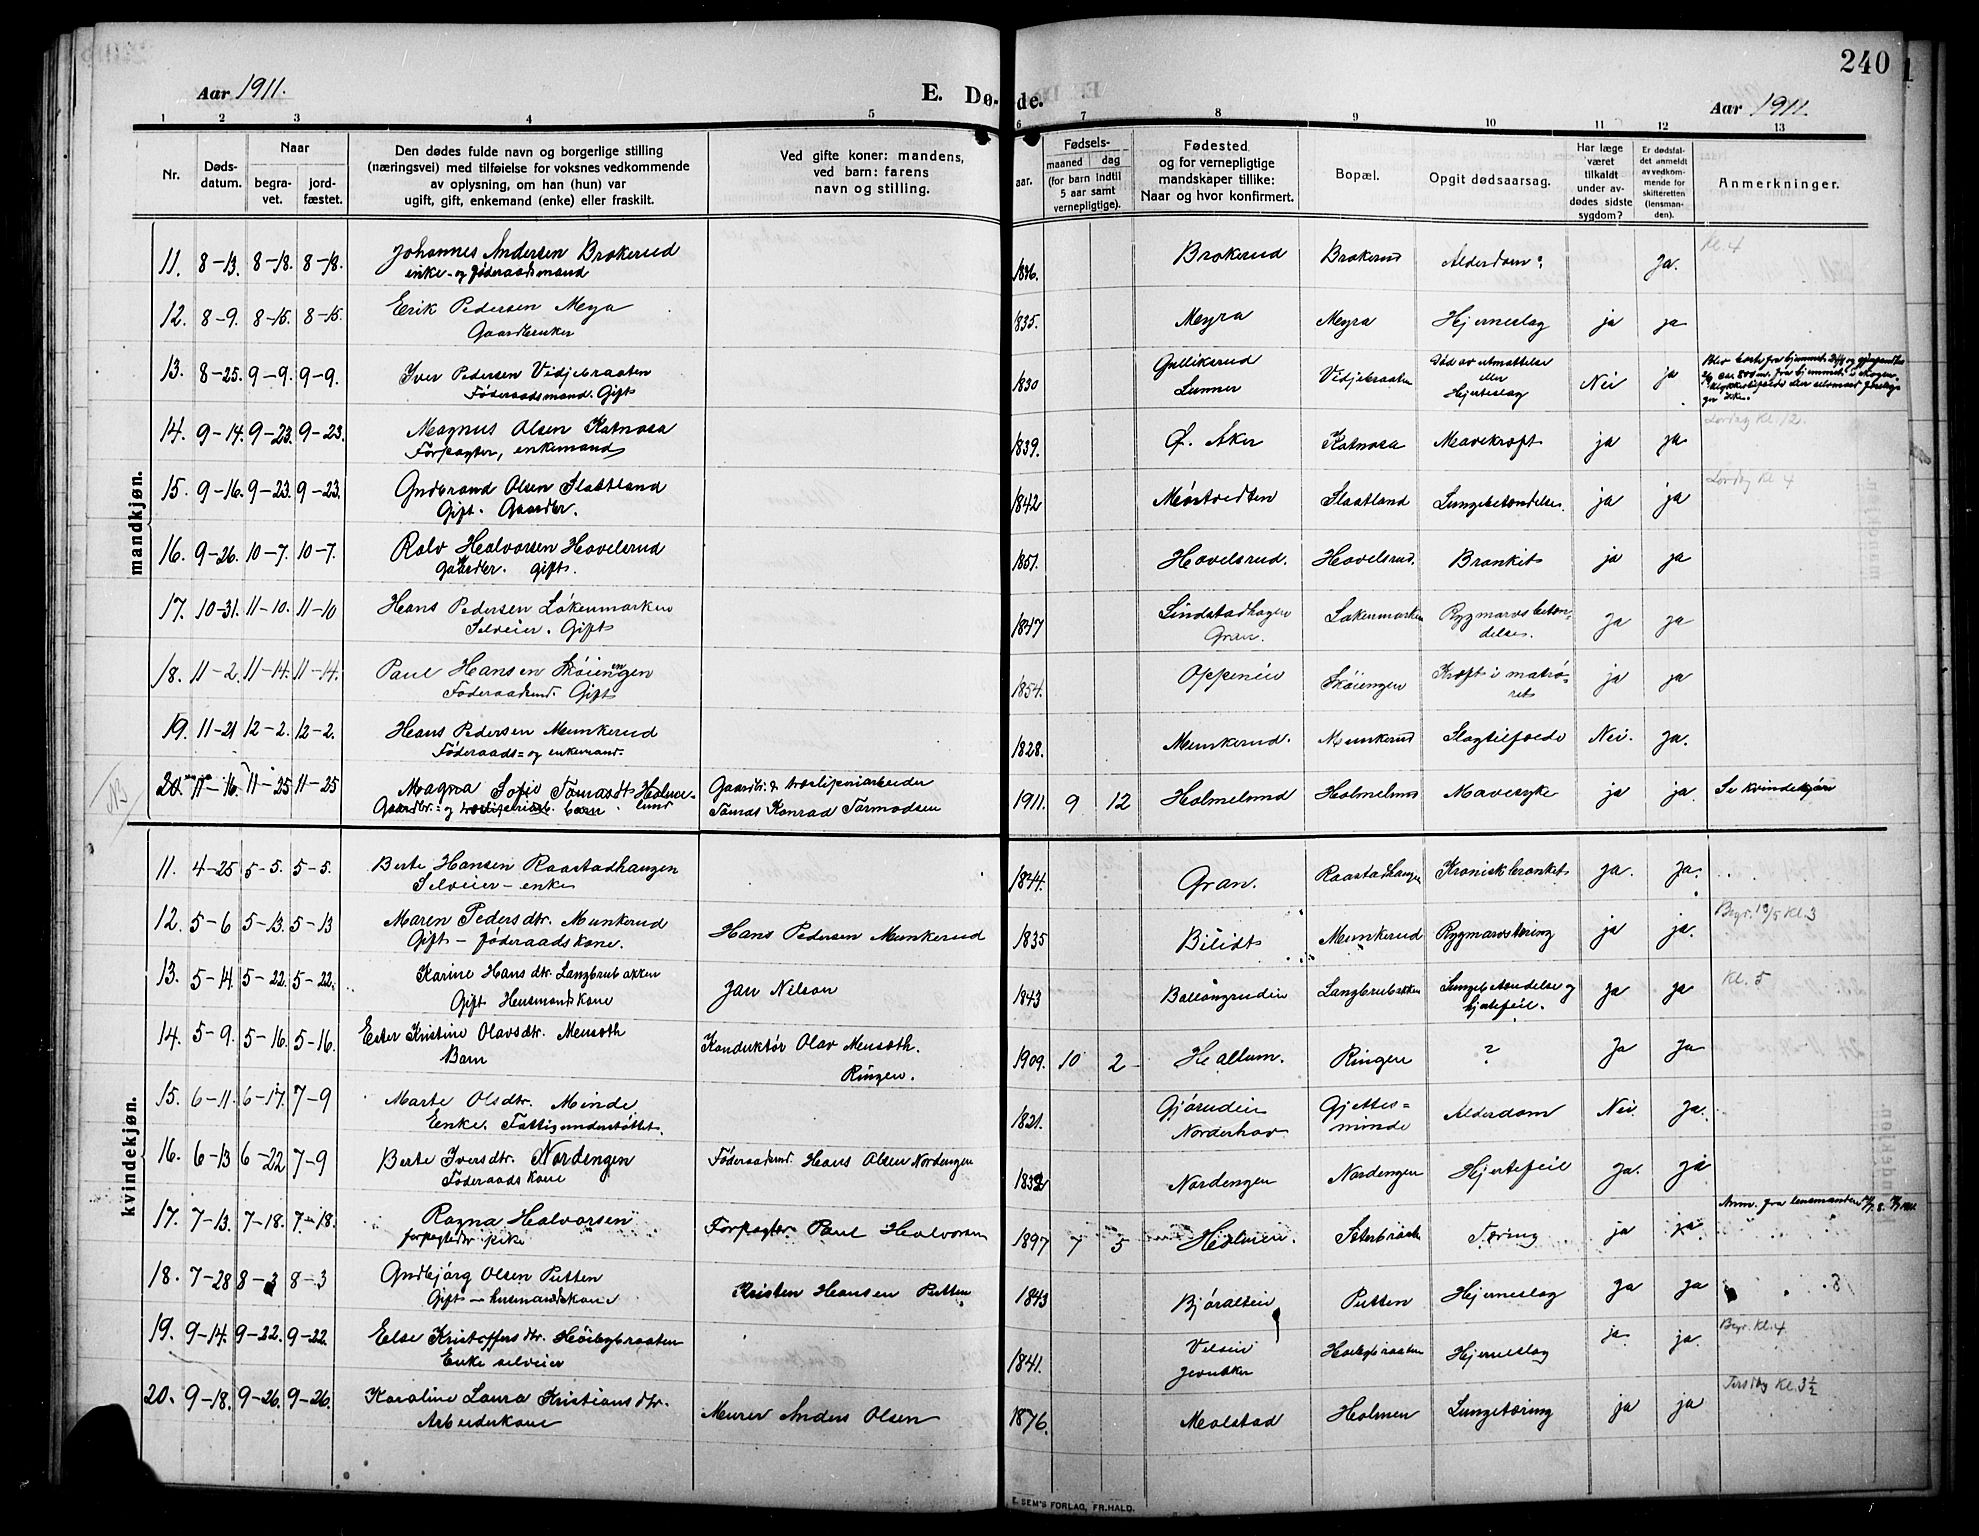 240
Aar 1911.
E. Dø-
de.
Aar 1911.
1 2 3 4 5 6 7 8 9 10 11 12 13
Nr.
Døds-
datum.
Naar
begra-
vet.
jord-
fæstet.
Den dødes fulde navn og borgerlige stilling
(næringsvei) med tilføielse for voksnes vedkommende
av oplysning, om han (hun) var
ugift, gift, enkemand (enke) eller fraskilt.
Ved gifte koner: mandens,
ved barn: farens
navn og stilling.
aar.
Fødsels-
maaned dag
(for barn indtil
5 aar samt
vernepligtige).
Fødested
og for vernepligtige
mandskaper tillike:
Naar og hvor konfirmert.
Bopæl.
Opgit dødsaarsag.
Har læge
været
tilkaldt
under av-
dødes sidste
sygdom?
Er dødsfal-
det anmeldt
av vedkom-
mende for
skifteretten
(lensman-
den).
Anmerkninger.
mandkjøn.
11. 8-13. 8-18. 8-18. Johannes Andersen Brokerud 1846. Brokerud Brokerud Alderdom Ja. Kl. 4
enke- og føderaadsmand
12. 8-9. 8-15. 8-15. Erik Pedersen Meya 1835. Meyra Meyra Hjerneslag ja ja
Gaardbruker
13. 8-25. 9-9. 9-9. Iver Pedersen Vidjebraaten 1830 Gulliksrud Vidjebraaten Død av utmattelse Nei ja
Føderaadsmand. Gift Lunner eller
Hjerteslag
14. 9-14. 9-23. 9-23. Magnus Olsen Katnosa 1839. Ø. Aker Katnosa Mavekræft ja ja Lørdag Kl. 12.
Forpagter, enkemand
15. 9-16. 9-23. 9-23. Gudbrand Olsen Slaatland 1842 Møstvedten Slaatland Lungebetændelse ja ja Lørdag Kl 4
Gift. Gaardbr.
16. 9-26. 10-7. 10-7. Rolv Halvorsen Hovelsrud 1851. Hovelsrud. Hovelsrud. Bronkit ja ja
Gaardbr. gift.
17. 10-31. 11-10. 11-10 Hans Pedersen Løkenmarken 1847 Lindstadhagen Løkenmarken Rygmarvsbetæn-
Selveier. Gift Gran. delse. Ja ja
18. 11-2. 11-14. 11-14. Paul Hansen Skøiengen 1854. Oppenin Skøiengen Kræft i matrø-
Føderaadsmd. Gift ret ja ja
19. 11-21 12-2. 12-2. Hans Pedersen Munkerud 1828. Munkerud. Munkerud Slagtilfælde Nei. Ja.
Føderaads- og enkemand.
NB
20 11-16. 11-25 11-25 Magna Sofie Tomasdt Holme- Gaardbr. & træsliperiarbeider 1911. 9 12 Holmelund Holmelund Mavesyke ja ja. Se kvindekjøn
Gaardbr. og træsliperiarb. barn lund Tomas Konrad Tormodsen
kvindekjøn.
11. 4-25 5-5. 5-5. Berte Hansen Raastadhaugen 1844. Gran. Raastadhaugen Kronisk bronkit ja. Ja.
Selveier-enke
12. 5-6 5-13. 5-13 Maren Pedersdtr. Munkerud Hans Pedersen Munkerud 1835 Bilidt Munkerud Rygmarvstæring ja ja. Begr. 13/5 Kl. 3
Gift - føderaadskone.
13. 5-14. 5-22. 5-22. Karine Hansdtr. Langbrubakken Jan Nilson 1843 Ballangrudeie Langbrubakken Lungebetændelse og Ja Ja Kl. 5
Gift Husmandskone hjertefeil.
14. 5-9. 5-16. 5-16. Ester Kristine Olavsdtr. Mensoth Konduktør Olav Mensoth. 1909. 10 2 Hallum. Ringen ? Ja Ja
Barn Ringen.
15. 6-11. 6-17. 7-9 Marte Olsdtr. Minde 1821. Gjørudeie Gjettes- Alderdom Nei. Ja.
Enke. Fattigunderstøttet. Norderhov. minde
16. 6-13 6-22 7-9 Berte Iversdtr. Nordengen Føderaadsmd. Hans Olsen Nordengen 1832 Nordengen Nordengen Hjertefeil Ja. ja
Føderaadskone
17. 7-13. 7-18. 7-18. Ragna Halvorsen Forpagter Paul Halvorsen 1897 7 5 Holmen. Tæring ja ja. Anm. fra lensmanden
forpagterpike
18. 7-28 8-3 8-3 Gudbjørg Olsen Putten Kristen Hansen Putten 1843 Bjøralteie Putten Hjerneslag Ja Ja
Gift - husmandskone
19. 9-14. 9-22. 9-22. Else Kristoffersdtr. Høibybraaten 1841. Velsin Høibybraaten Hjerneslag ja ja. Begr. Kl. 4
Enke selveier Jevnaker
20. 9-18. 9-26. 9-26. Karoline Laura Kristiansdtr. Murer Anders Olsen 1876. Molstad Holmen Lungetæring ja ja Tirsdag Kl. 3½
Arbeiderkone
E. SEM'S FORLAG, FR.HALD.